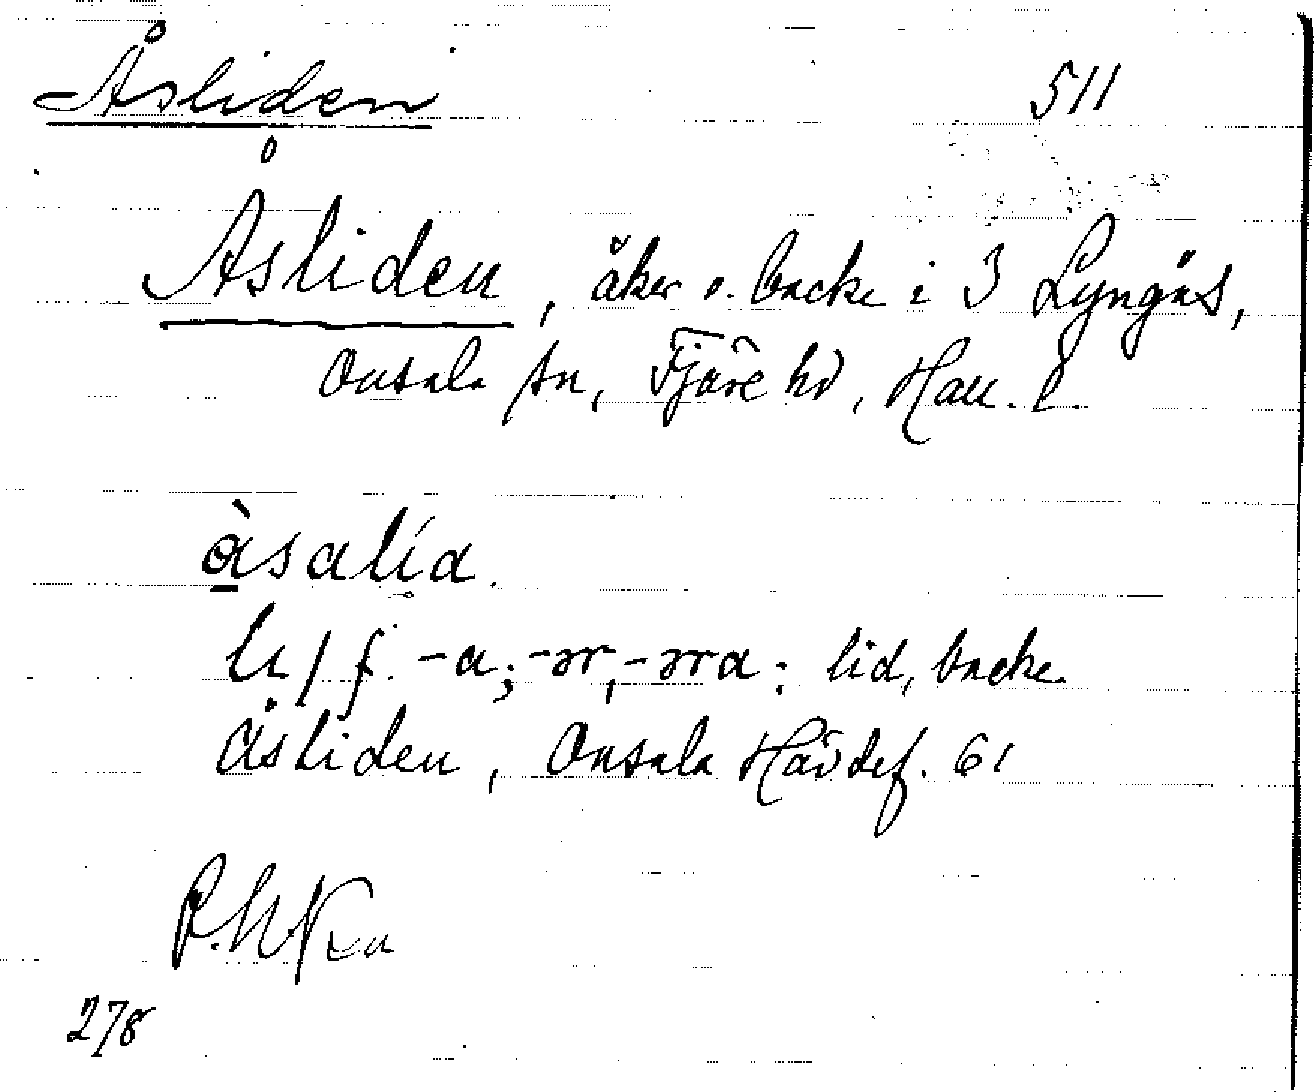 Åsliden
511
Åsliden, åker o. backe i 3 Lyngås,
Onsala sn, Fjäre hd, Hall. l.
àsalía.
li / f. -a; -ər, -ərra: lid, backe.
Åsliden, Onsala Hävdef. 61
278